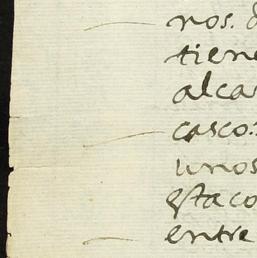 nos. d
tiene
alcas
casco:
unos
esta co
entre